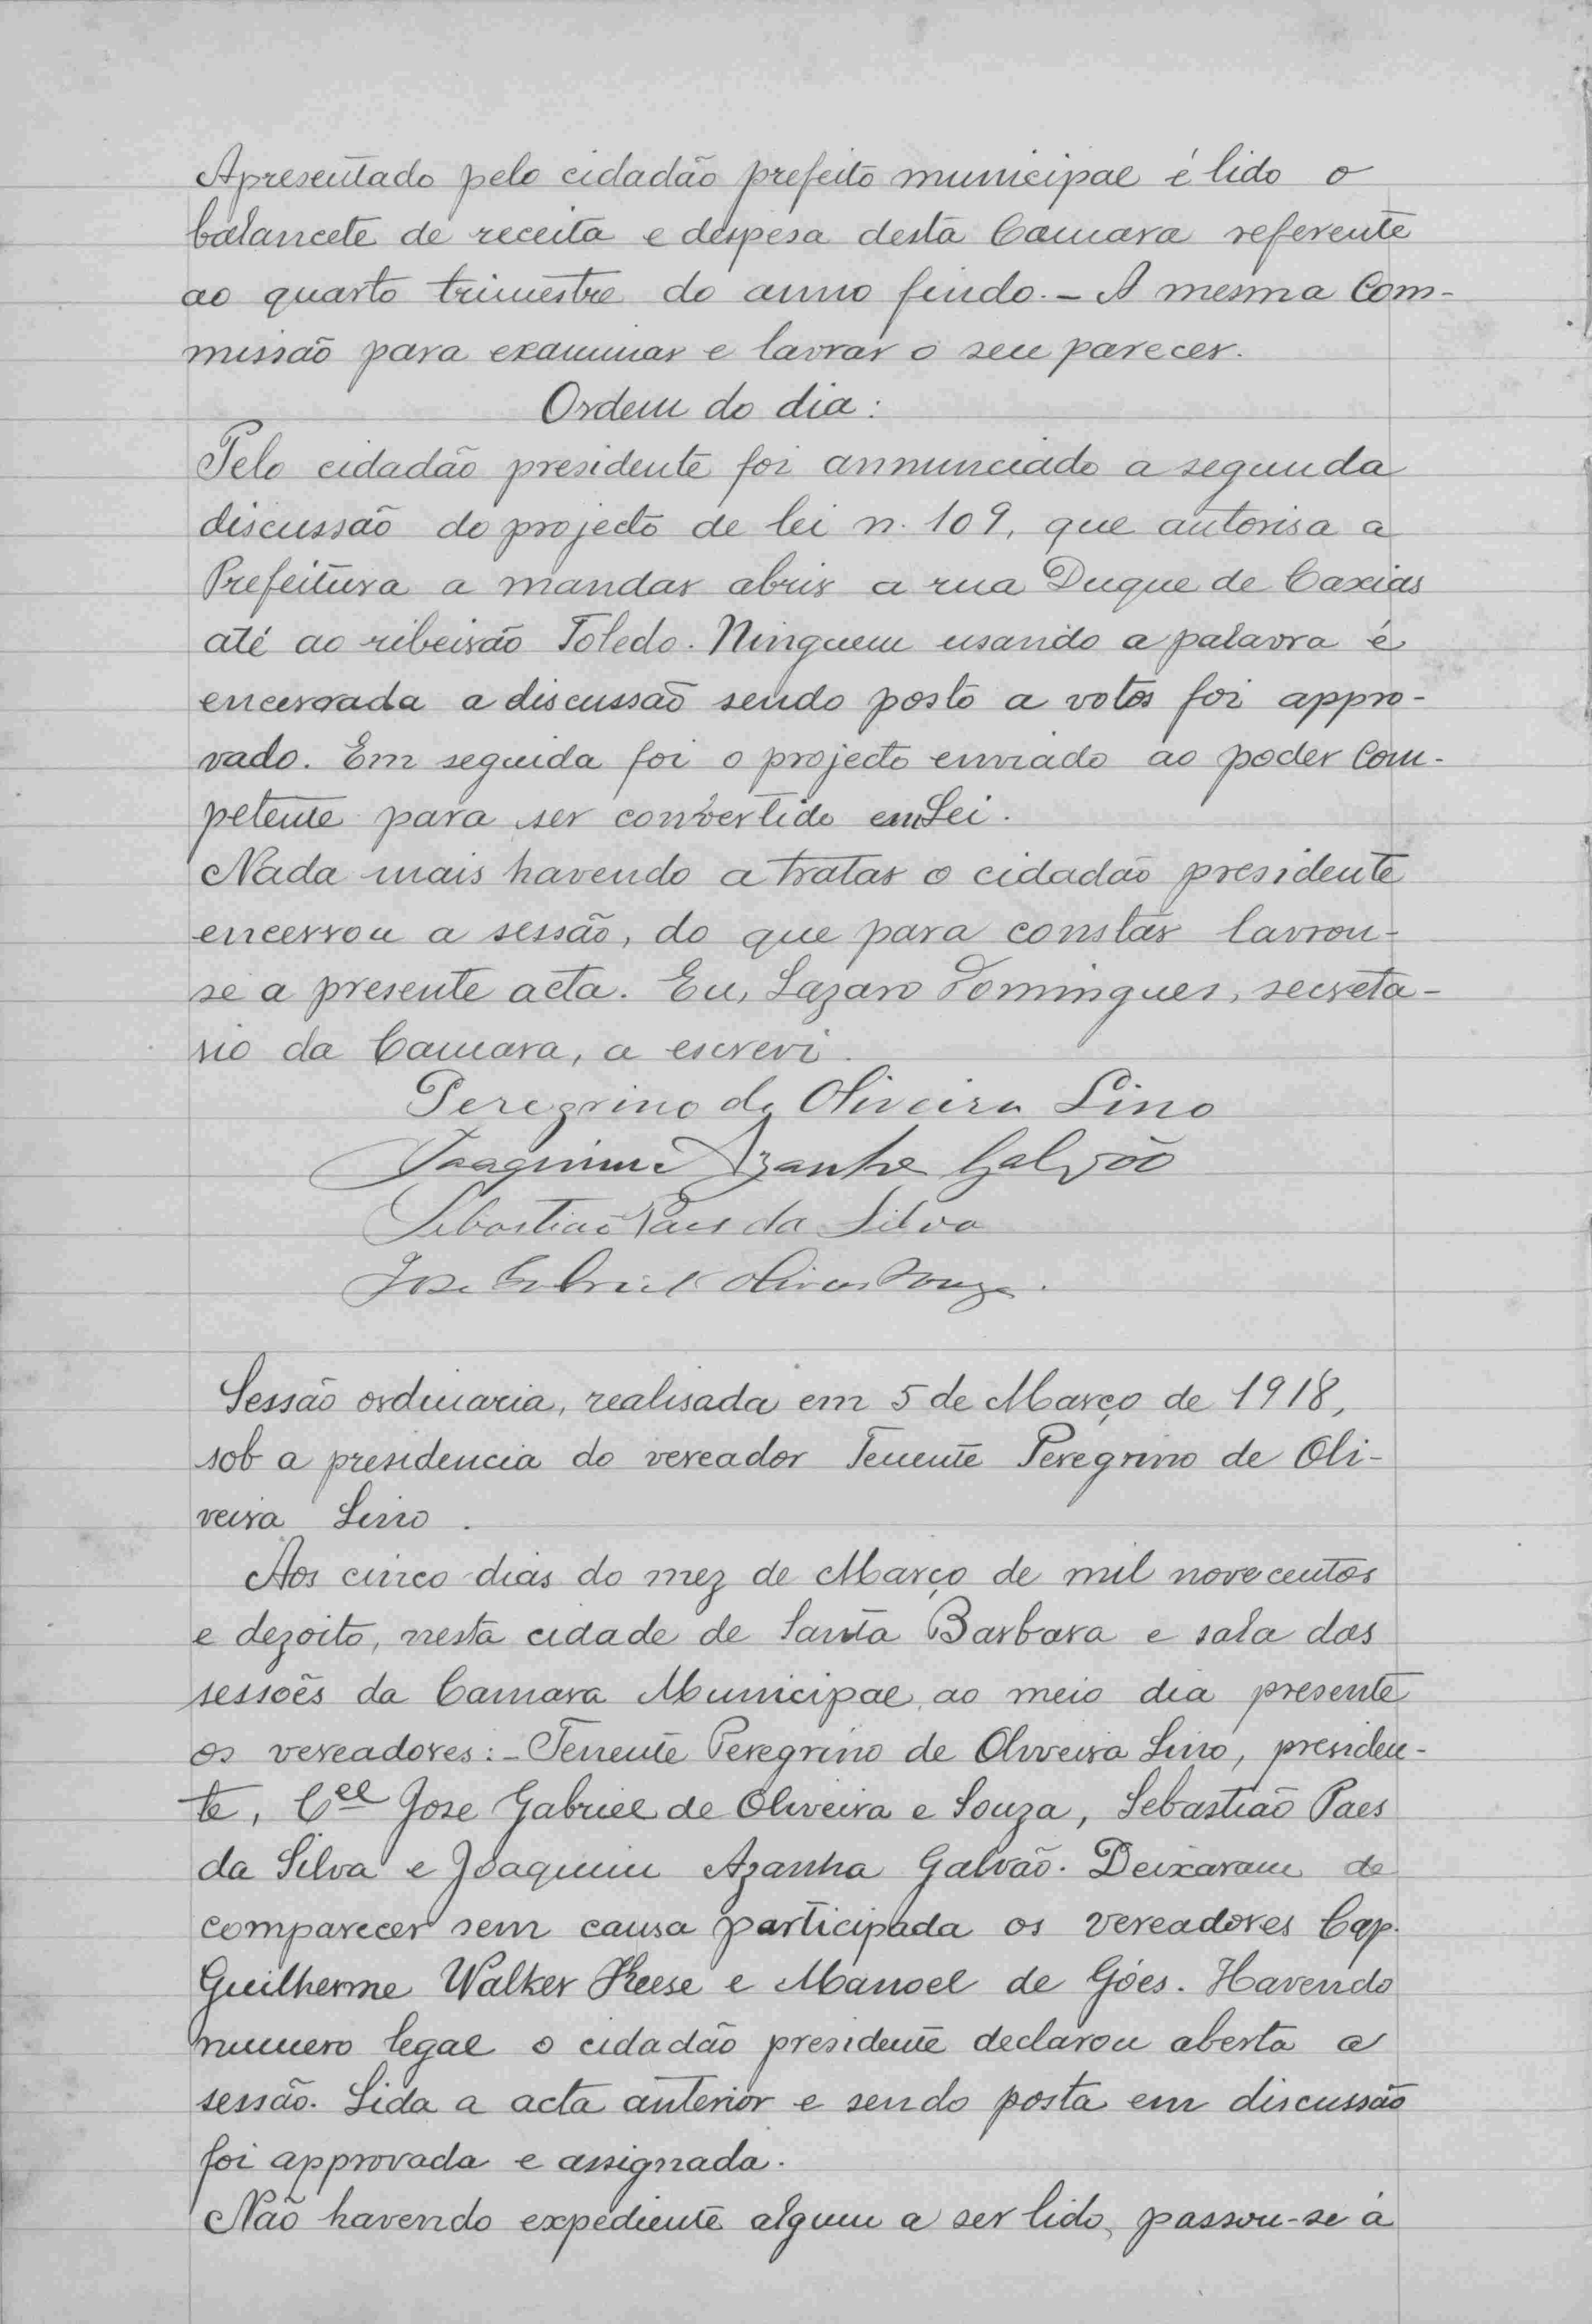 Apresentado pelo cidadão prefeito municipal é lido o
balancete de receita e despesa desta Camara referente
ao quarto trimestre do anno findo. - A mesma Com-
missão para examinar e lavrar o seu parecer.
Ordem do dia:
Pelo cidadão presidente foi annunciado a segunda
discussão do projecto de lei n. 109, que autorisa a
Prefeitura a mandar abrir a rua Duque de Caxias
até ao ribeirão Toledo. Ninguem usando a palavra é
encerrada a discussão sendo posto a votos foi appro-
vado. Em seguida foi o projecto enviado ao poder Com-
petente para ser convertido em Lei.
Nada mais havendo a tratar o cidadão presidente
encerrou a sessão, do que para constar lavrou-
se a presente acta. Eu, Lazaro Domingues, secreta-
rio da Camara, a escrevi.
Peregrino de Oliveira Lino
Joaquim Azanha Galvão
Sebastião Paes da Silva
Jose Gabriel Olivei Souza.
Sessão ordinaria, realisada em 5 de Março de 1918,
sob a presidencia do vereador Tenente Peregrino de Oli-
veira Lino.
Aos cinco dias do mez de Março de mil novecentos
e dezoito, nesta cidade de Santa Barbara e sala das
sessões da Camara Municipal, ao meio dia presente
os vereadores: - Tenente Peregrino de Oliveira Lino, presiden-
te, Cel Jose Gabriel de Oliveira e Souza, Sebastião Paes
da Silva e Joaquim Azanha Galvão. Deixaram de
comparecer sem causa participada os vereadores Cap.
Guilherme Walker Keese e Manoel de Góes. Havendo
numero legal o cidadão presidente declarou aberta a
sessão. Lida a acta anterior e sendo posta em discussão
foi approvada e assignada.
Não havendo expediente algum a ser lido, passou-se á